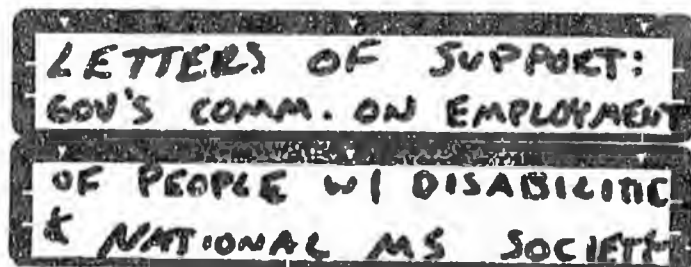 LETTERS OF SUPPORT:
GOV'S COMM. ON EMPLOYMENT
OF PEOPLE W/ DISABILITIE
& NATIONAL MS SOCIETY